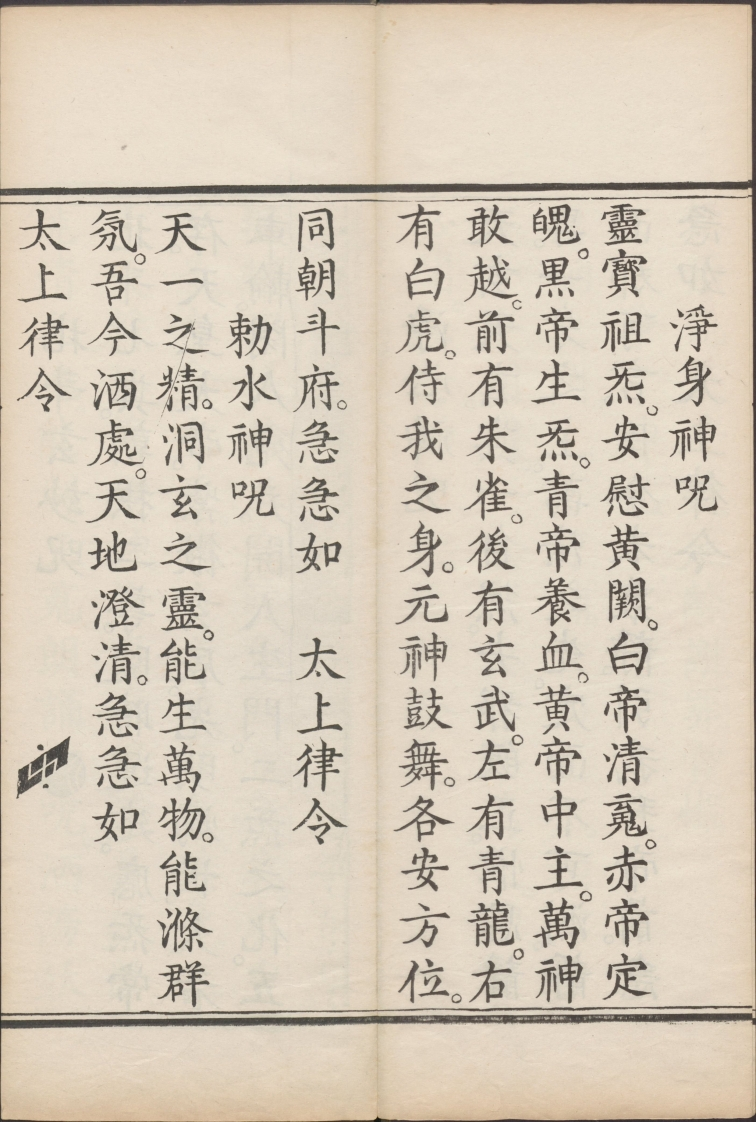 淨身神呪
靈寶祖炁。安慰黄闕。白帝清䰟。赤帝定
魄。黒帝生炁。青帝養血。黄帝中主。萬神
敢越。前有朱雀。後有玄武。左有青龍。右
有白虎。侍我之身。元神鼓舞。各安方位。
同朝斗府。急急如　太上律令
勅水神呪
天一之精。洞玄之靈。能生萬物。能滌群
氛。吾今洒處。天地澄清。急急如
太上律令